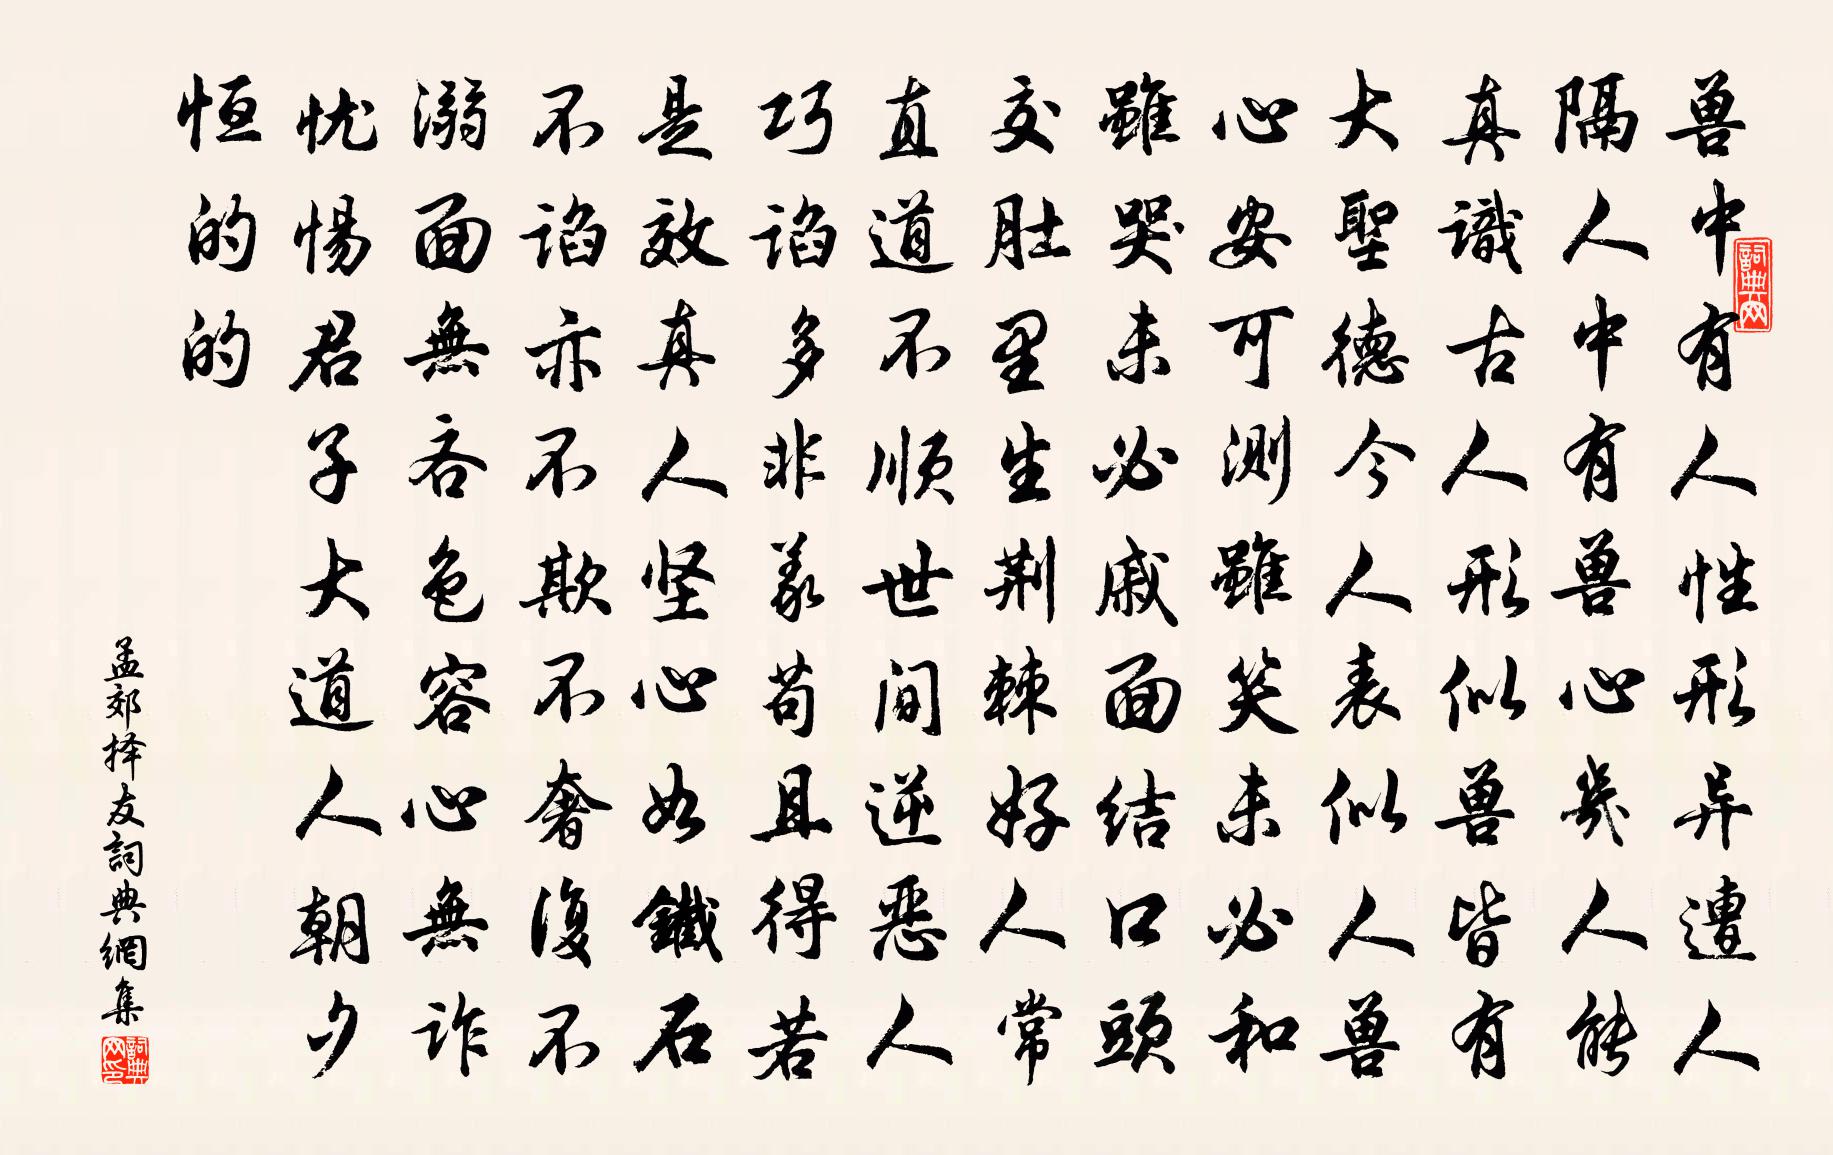 兽中有人性形异遭人
隔人中有兽心几人能
真識古人形似兽皆有
大聖德今人表似人兽
心安可测雖笑未必和
雖哭未必戚面结口頭
交肚里生荆棘好人常
直道不顺世间逆恶人
巧谄多非義苟且得若
是效真人坚心如鐵石
不谄亦不欺不奢復不
溺面無吝色容心無诈
忧惕君子大道人朝夕
恒的的
孟郊择友詞典網集
詞典网
詞典网印